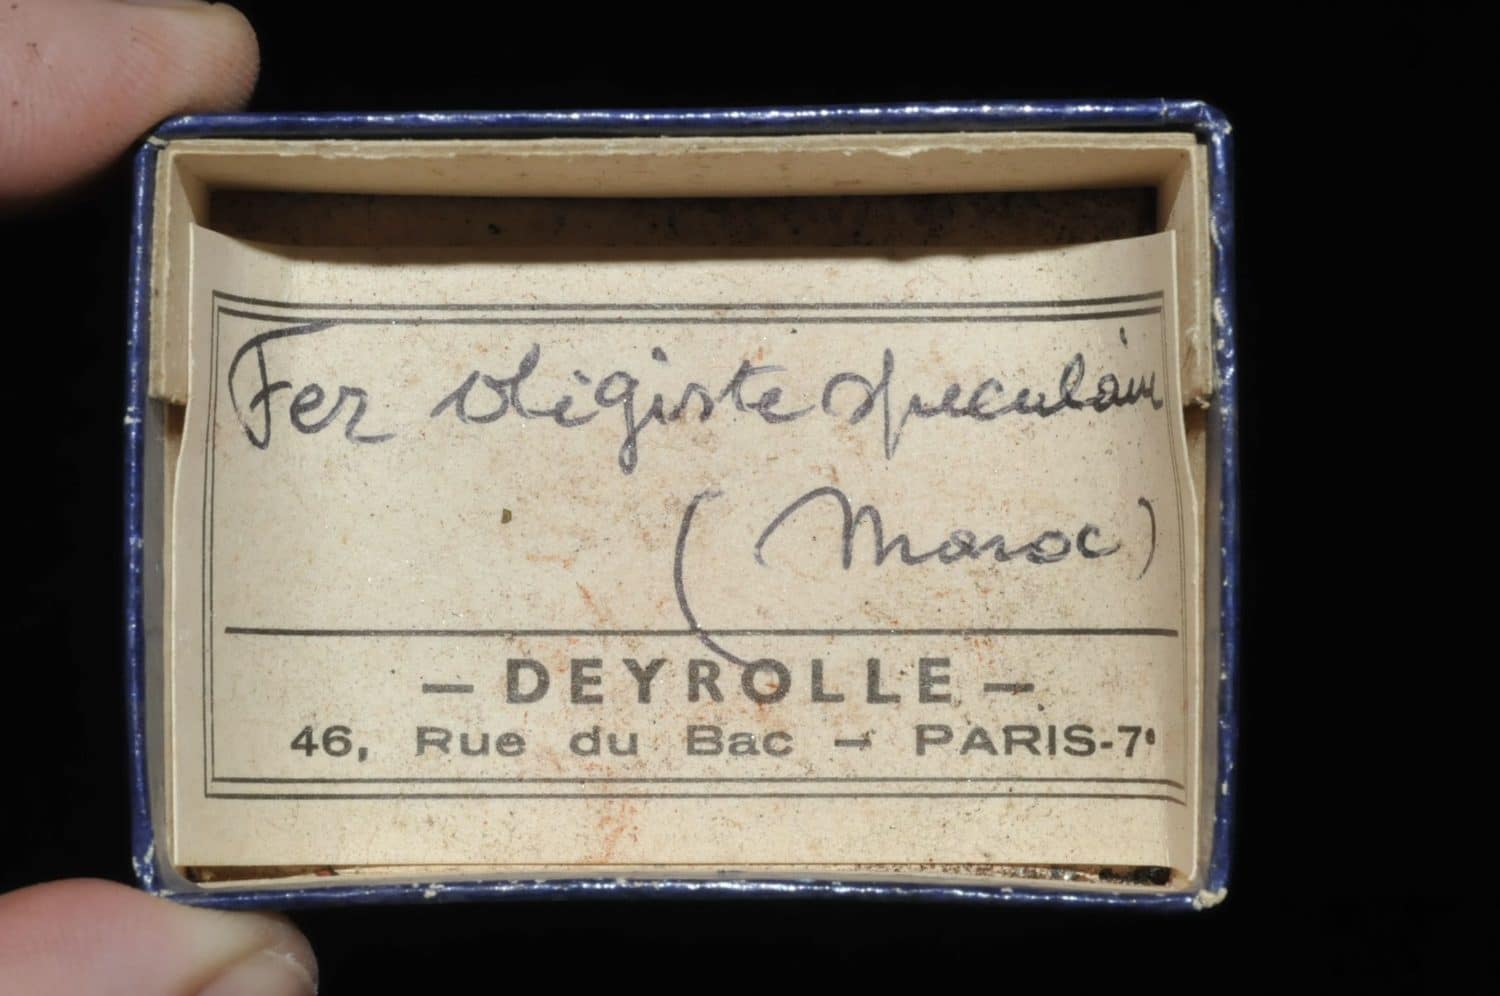 Fer oligiste speculaire
(Maroc)
— DEYROLLE —
46, Rue du Bac — PARIS-7e